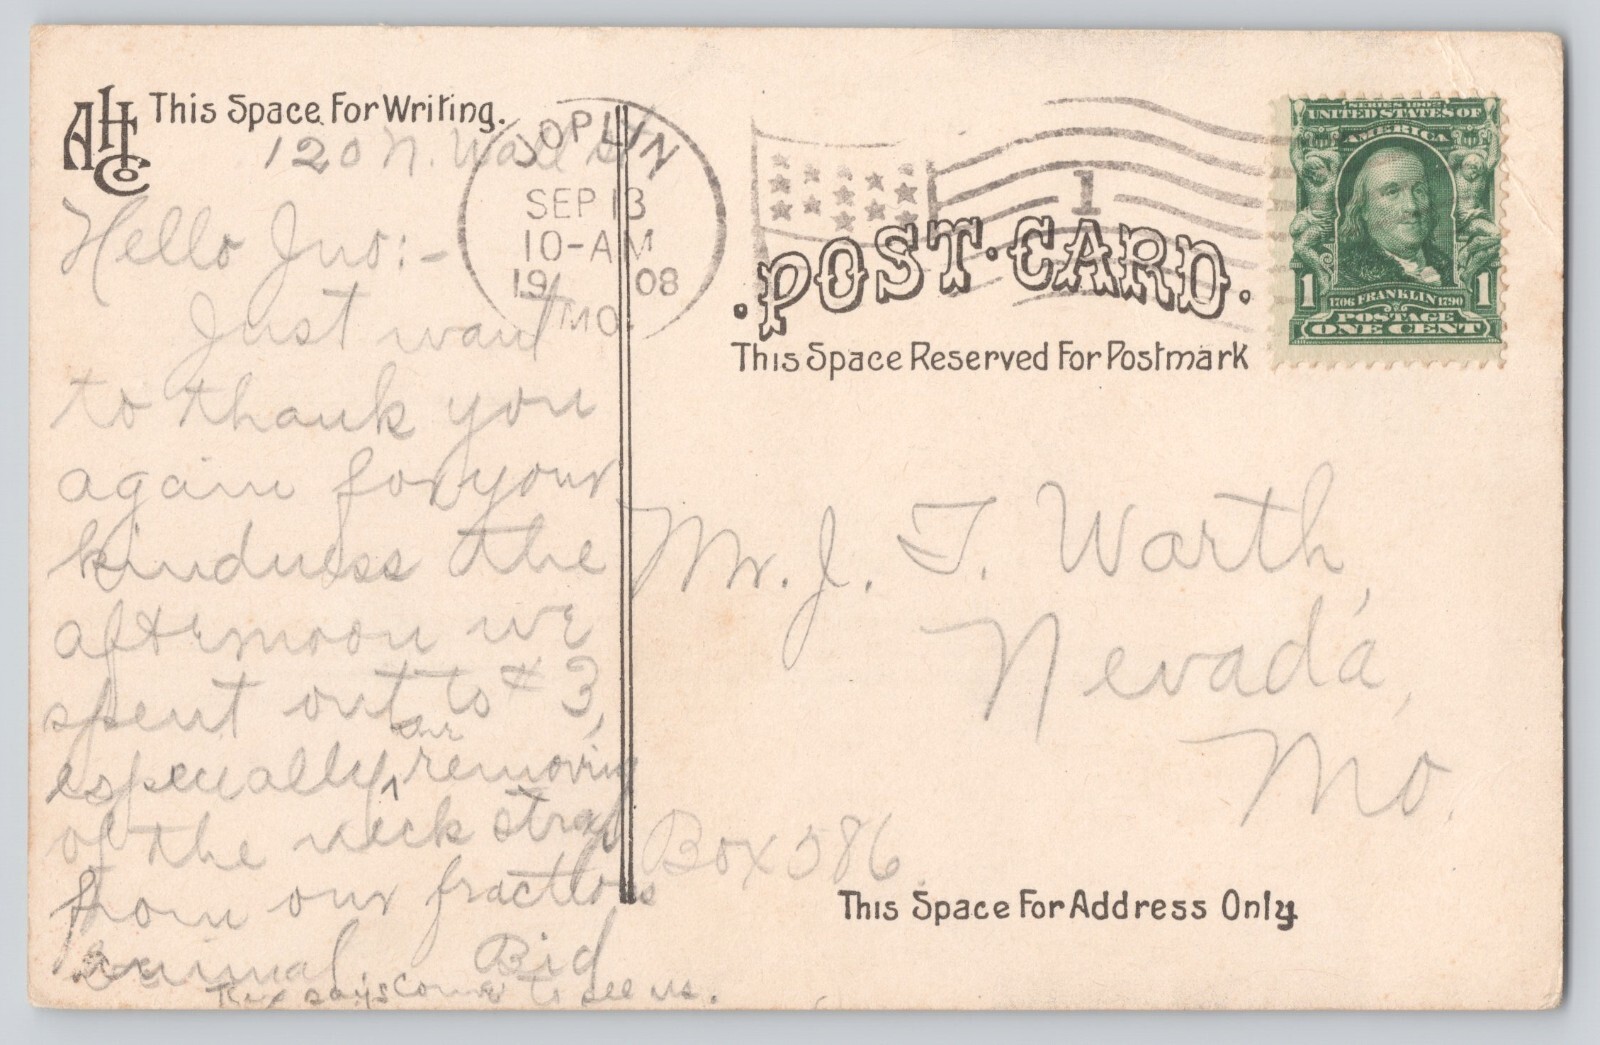 AHCo This Space For Writing.
120 N. Wall St
Hello Jno:-
Just want
to thank you
again for your
kindness the
afternoon we
spent out to #3,
especially our removing
of the neck strap
from our fractious
animal Bid
says come to see us.
JOPLIN
SEP 13
10-AM
1908
MO.
1
SERIES 1902
UNITED STATES OF
AMERICA
1 1
1706 FRANKLIN 1790
POSTAGE
ONE CENT
POST·CARD.
This Space Reserved For Postmark
Mr. J. T. Warth,
Nevada,
Mo.
Box 586
This Space For Address Only.